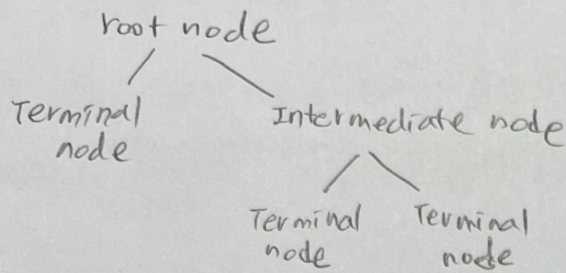 root node
Terminal
node
Intermediate node
Terminal
node
Terminal
node